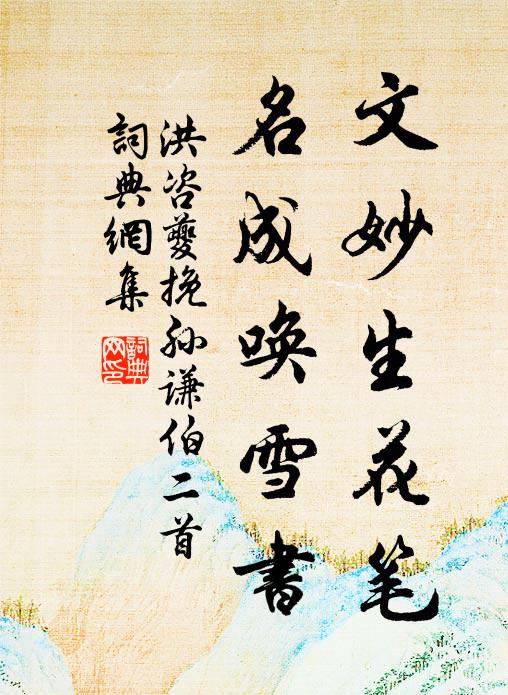 文妙生花笔
名成唤雪書
洪咨夔挽孙谦伯二首
詞典網集
詞典网印